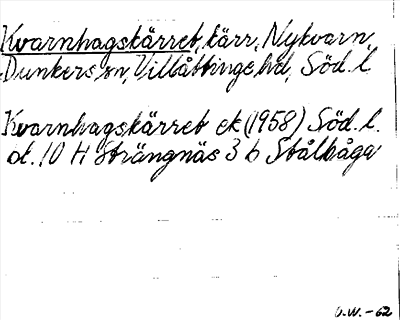 Kvarnhagskärret, kärr, Nykvarn,
Dunkers sn, Villåttinge hd, Söd. l.
Kvarnhagskärret ek (1958) Söd. l.
bl. 10 H Strängnäs 3 b Stålboga
U.W. -62